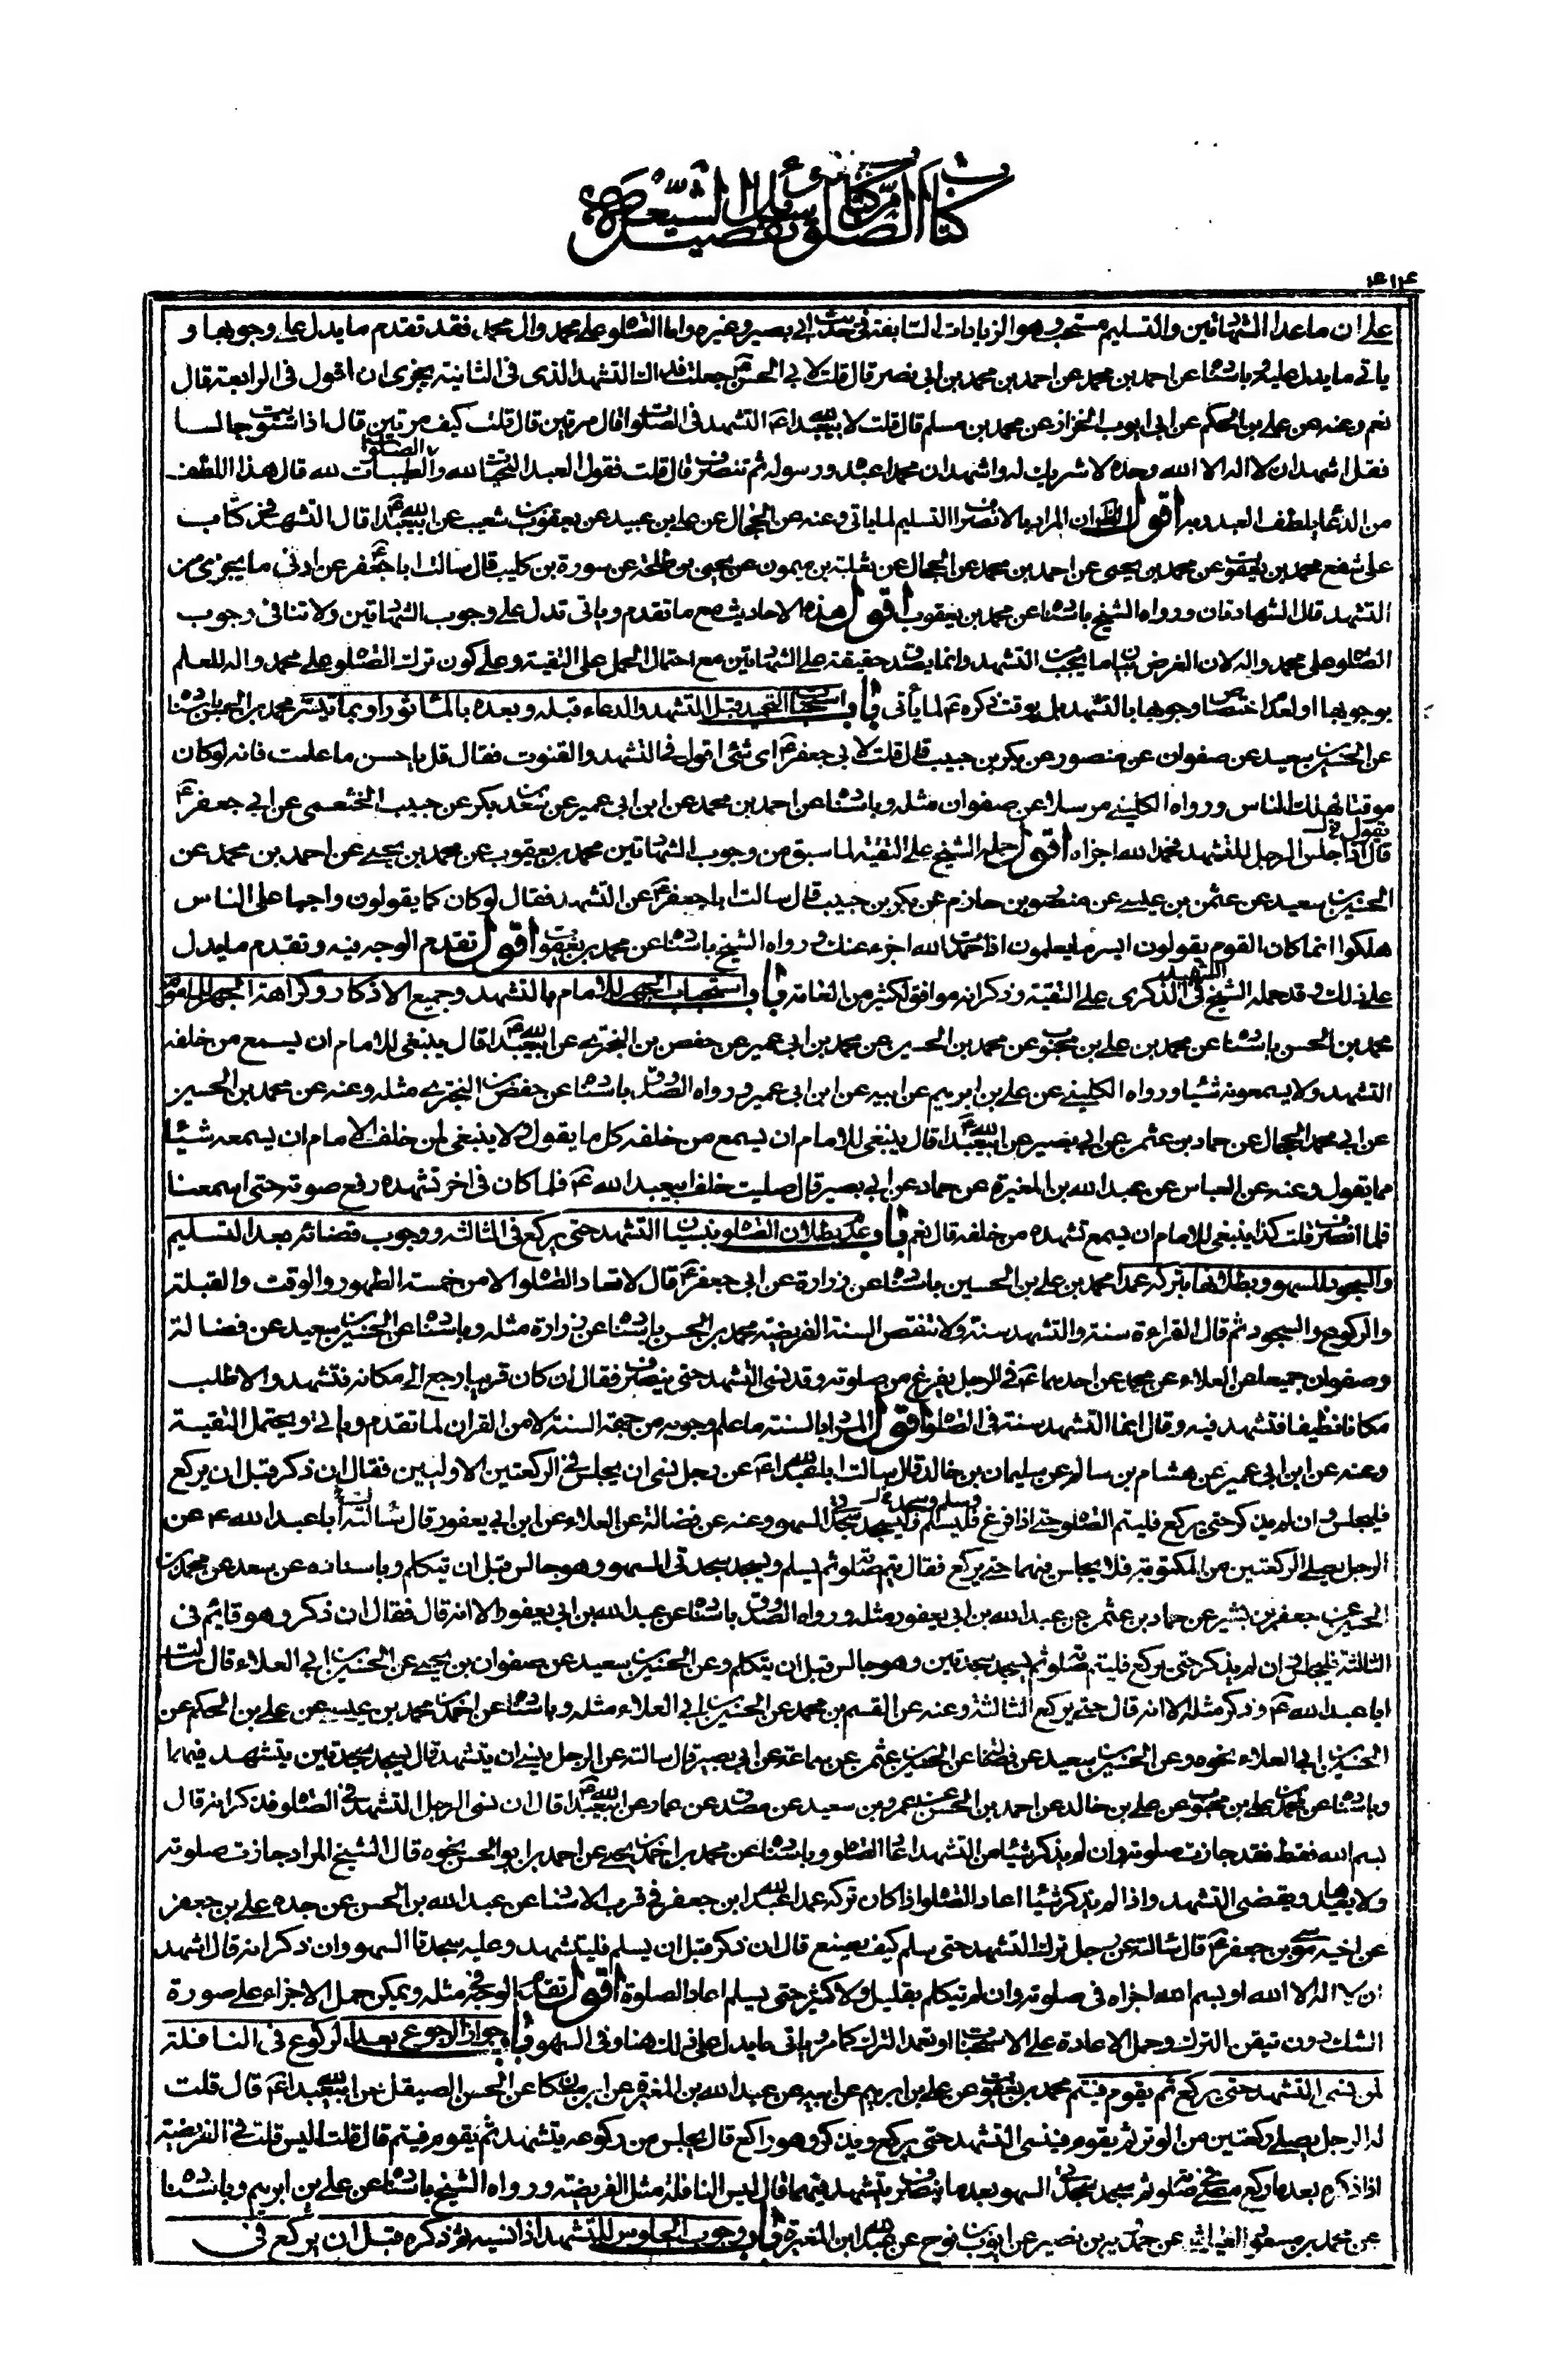 كتاب الصلوة من كتاب تفصيل وسائل الشيعة
على ان ما عدا الشهادتين والتسليم مستحب وهو الزيادات السابقة فى حديث ابى بصير وغيره واما الصلوة على محمد وال محمد فقد تقدم ما يدل على وجوبها و
ياتى ما يدل عليه وباسناده عن احمد بن محمد عن احمد بن محمد بن ابى نصر قال قلت لابى الحسن ع جعلت فداك التشهد الذى فى الثانية يجزى ان اقول فى الرابعة قال
نعم وعنه عن على بن الحكم عن ابى ايوب الخزاز عن محمد بن مسلم قال قلت لابيعبد الله ع التشهد فى الصلوة قال مرتين قال قلت كيف مرتين قال اذا استويت جالسا
فقل اشهد ان لا اله الا الله وحده لا شريك له واشهد ان محمدا عبده ورسوله ثم تنصرف قال قلت فقول العبد التحيات لله والصلوات الطيبات لله قال هذا اللطف
من الدعاء يلطف العبد ربه اقول المراد بالانصراف التسليم لما ياتى وعنه عن الحجال عن على بن عبيد عن يعقوب بن شعيب عن ابيعبد الله ع قال التشهد فى كتاب
على شفع محمد بن يعقوب عن محمد بن يحيى عن احمد بن محمد عن الحجال عن ثعلبة بن ميمون عن يحيى بن طلحة عن سورة بن كليب قال سالت ابا جعفر ع عن ادنى ما يجزى من
التشهد قال الشهادتان ورواه الشيخ باسناده عن محمد بن يعقوب اقول هذه الاحاديث مع ما تقدم وياتى تدل على وجوب الشهادتين ولا تنافى وجوب
الصلوة على محمد واله لان الغرض بيان ما يجب من التشهد وانما يصدق حقيقة على الشهادتين مع احتمال الحمل على التقية وعلى كون ترك الصلوة على محمد واله للعلم
بوجوبها او لعدم اختصاص وجوبها بالتشهد بل بوقت ذكره ع لما يأتى باب استحباب التحميد قبل التشهد والدعاء قبله وبعده بالماثور او بما تيسر محمد بن الحسن باسناده
عن الحسين بن سعيد عن صفوان عن منصور عن بكر بن حبيب قال قلت لابى جعفر ع اى شئ اقول فى التشهد والقنوت فقال قل باحسن ما علمت فانه لو كان
موقتا لهلك الناس ورواه الكلينى مرسلا عن صفوان مثله وباسناده عن احمد بن محمد عن ابن ابى عمير عن سعد بن بكر عن حبيب الخثعمى عن ابى جعفر ع
يقول
قال اذا جلس الرجل للتشهد فحمد الله اجزاه اقول حمله الشيخ على التقية لما سبق من وجوب الشهادتين محمد بن يعقوب عن محمد بن يحيى عن احمد بن محمد عن
الحسين بن سعيد عن عثمن بن عيسى عن منصور بن حازم عن بكر بن حبيب قال سالت ابا جعفر ع عن التشهد فقال لو كان كما يقولون واجبا على الناس
هلكوا انما كان القوم يقولون ايسر ما يعلمون اذا حمدت الله اجزء عنك ورواه الشيخ باسناده عن محمد بن يعقوب اقول تقدم الوجه فيه وتقدم ما يدل
على ذلك وقد حمله الشيخ الشهيد فى الذكرى على التقية وذكر انه موافق لكثير من العامة باب استحباب الجهر للامام بالتشهد وجميع الاذكار وكراهة الجهر للماموم
محمد بن الحسن باسناده عن محمد بن على بن محبوب عن محمد بن الحسين عن محمد بن ابى عمير عن حفص بن البخترى عن ابيعبد الله ع قال ينبغى للامام ان يسمع من خلفه
التشهد ولا يسمعونه شيئا ورواه الكلينى عن على بن ابرهيم عن ابيه عن ابن ابى عمير ورواه الصدوق باسناده عن حفص بن البخترى مثله وعنه عن محمد بن الحسين
عن ابى محمد الحجال عن حماد بن عثمن عن ابى بصير عن ابيعبد الله ع قال ينبغى للامام ان يسمع من خلفه كل ما يقول ولا ينبغى لمن خلف الامام ان يسمعه شيئا
مما يقول وعنه عن العباس عن عبد الله بن المغيرة عن حماد عن ابى بصير قال صليت خلف ابيعبد الله ع فلما كان فى اخر تشهده رفع صوته حتى اسمعنا
فلما انصرف قلت كذا ينبغى للامام ان يسمع تشهده من خلفه قال نعم باب عدم بطلان الصلوة بنسيان التشهد حتى يركع فى الثالثة ووجوب قضائه بعد التسليم
والسجود للسهو وبطلانها بتركه عمدا محمد بن على بن الحسين باسناده عن زرارة عن ابى جعفر ع قال لا تعاد الصلوة الا من خمسة الطهور والوقت والقبلة
والركوع والسجود ثم قال القراءة سنة والتشهد سنة ولا تنقض السنة الفريضة محمد بن الحسن باسناده عن زرارة مثله وباسناده عن الحسين بن سعيد عن فضالة
وصفوان جميعا عن العلاء عن محمد عن احدهما ع فى الرجل يفرغ من صلوته وقد نسى التشهد حتى ينصرف فقال ان كان قريبا رجع الى مكانه فتشهد والا طلب
مكانا نظيفا فتشهد فيه وقال انما التشهد سنة فى الصلوة اقول المراد بالسنة ما علم وجوبه من جهة السنة لا من القران لما تقدم وياتى ويحتمل التقية
وعنه عن ابن ابى عمير عن هشام بن سالم عن سليمان بن خالد قال سالت ابا عبد الله ع عن رجل نسى ان يجلس فى الركعتين الاوليين فقال ان ذكر قبل ان يركع
فليجلس وان لم يذكر حتى يركع فليتم الصلوة حتى اذا فرغ فليسلم وليسجد سجدتى السهو وعنه عن فضالة عن العلاء عن ابن ابى يعفور قال سالت ابا عبد الله ع عن
الرجل يصلى الركعتين من المكتوبة فلا يجلس فيهما حتى يركع فقال يتم صلوته ثم يسلم ويسجد سجدتى السهو وهو جالس قبل ان يتكلم وباسناده عن سعد عن محمد بن
الحسين عن جعفر بن بشير عن حماد بن عثمن عن عبد الله بن ابى يعفور مثله ورواه الصدوق باسناده عن عبد الله بن ابى يعفور الا انه قال فقال ان ذكر وهو قايم فى
الثالثة فليجلس وان لم يذكر حتى يركع فليتم صلوته ثم يسجد سجدتين وهو جالس قبل ان يتكلم وعن الحسين بن سعيد عن صفوان بن يحيى عن الحسين بن ابى العلاء قال سالت
ابا عبد الله ع وذكر مثله الا انه قال حتى يركع الثالثة وعنه عن القسم بن محمد عن الحسين بن ابى العلاء مثله وباسناده عن احمد بن محمد بن عيسى عن على بن الحكم عن
الحسين بن ابى العلاء نحوه وعن الحسين بن سعيد عن فضالة عن الحسين بن عثمن عن سماعة عن ابى بصير قال سالته عن الرجل ينسى ان يتشهد قال يسجد سجدتين يتشهد فيهما
وباسناده عن محمد بن على بن محبوب عن على بن خالد عن احمد بن الحسن عن عمرو بن سعيد عن مصدق عن عمار عن ابيعبد الله ع قال ان نسى الرجل التشهد فى الصلوة فذكر انه قال
بسم الله فقط فقد جازت صلوته وان لم يذكر شيئا من التشهد اعاد الصلوة وباسناده عن محمد بن احمد بن يحيى عن احمد بن ابى الحسن نحوه قال الشيخ المراد جازت صلوته
ولا يعيدها ويقضى التشهد واذا لم يذكر شيئا اعاد الصلوة اذا كان تركه عمدا عبد الله ابن جعفر فى قرب الاسناد عن عبد الله بن الحسن عن جده على بن جعفر
عن اخيه موسى بن جعفر ع قال سالته عن رجل ترك التشهد حتى سلم كيف يصنع قال ان ذكر قبل ان يسلم فليتشهد وعليه سجدتا السهو وان ذكر انه قال اشهد
ان لا اله الا الله او بسم الله اجزاه فى صلوته وان لم يتكلم بقليل ولا كثير حتى يسلم اعاد الصلوة اقول تقدم الوجه فى مثله ويمكن حمل الاجزاء على صورة
الشك دون تيقن الترك وحمل الاعادة على الاستحباب او تعمد الترك كما مر وياتى ما يدل على ذلك هنا وفى السهو باب جواز الرجوع بعد الركوع فى النافلة
لمن نسى التشهد حتى يركع ثم يقوم فيتم محمد بن يعقوب عن على بن ابرهيم عن ابيه عن عبد الله بن المغيرة عن ابن مسكان عن الحسن الصيقل عن ابيعبد الله ع قال قلت
له الرجل يصلى ركعتين من الوتر ثم يقوم فينسى التشهد حتى يركع ويذكر وهو راكع قال يجلس من ركوعه يتشهد ثم يقوم فيتم قال قلت اليس قلت فى الفريضة
اذا ذكره بعد ما ركع مضى فى صلوته ثم سجد سجدتى السهو بعد ما ينصرف يتشهد فيهما قال ليس النافلة مثل الفريضة ورواه الشيخ باسناده عن على بن ابرهيم وباسناده
عن محمد بن مسعود العياشى عن حمدويه بن نصير عن ايوب بن نوح عن عبد الله ابن المغيرة باب وجوب الجلوس للتشهد اذا نسيه ثم ذكره قبل ان يركع فى